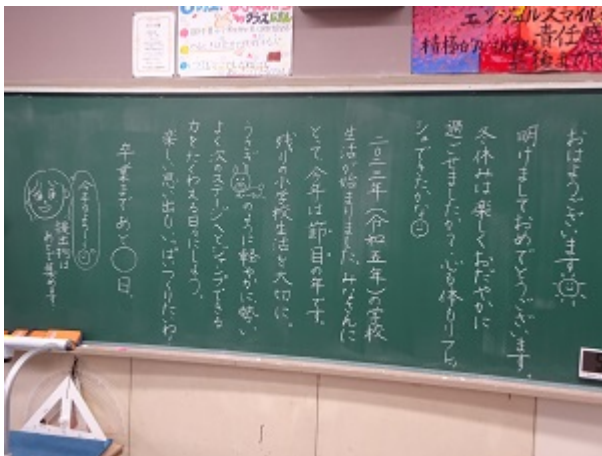 クラス
エンジェルスマイル
責任感
おはようございます
明けましておめでとうございます。
冬休みは楽しくおだやかに
過ごせましたか？心も体もリフレッ
シュできたかな
二〇二三年(令和五年)の学校
生活が始まりました。みなさんに
とって、今年は節目の年です。
残りの小学校生活を大切に。
うさぎのように軽やかに勢い
よく次のステージへとジャンプできる
力をたくわえる日々にしよう。
楽しい思い出もいっぱいつくりたいね！
卒業まであと〇日。
今年もよろしく
提出物は
あとで集めます